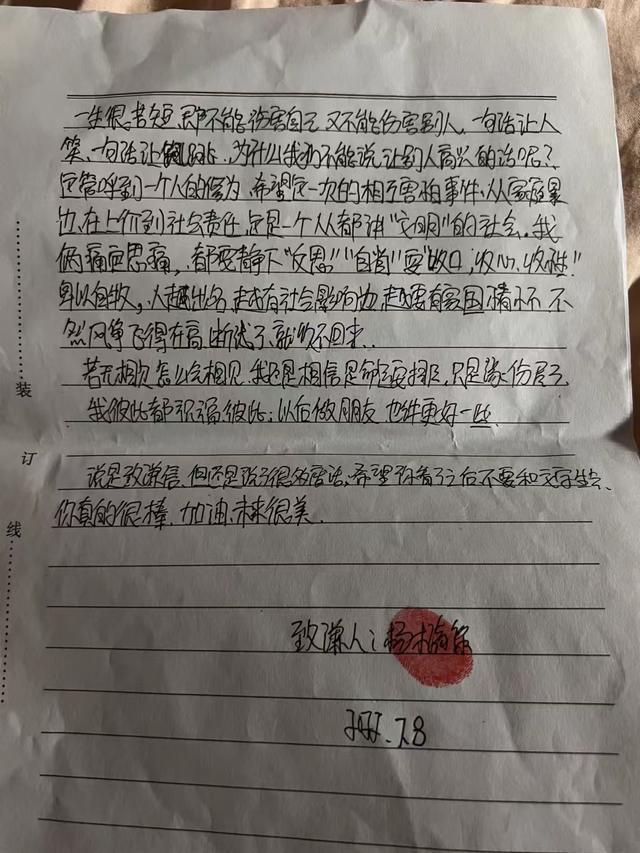 一生很苦短,即不能伤害自己,又不能伤害别人,一句话让人
笑,一句话让人跳,为什么我们不能说让别人高兴的话呢?
定管呼到一个人的作为,希望这一次的相互害怕事件,从家庭里
边,在上价到社会责任,这是一个人人都讲“文明”的社会。我
俩痛定思痛,都要静下“反思”“自省”要“收口,收心,收性”
卑以自牧,人越出名,越有社会影响力,越要有家国情怀,不
然风筝飞得在高,断线了,就收不回来.
若无相欠怎么会相见.我还是相信是缘安排,只是缘份尽了.
我彼此都祝福彼此;以后做朋友也许更好一些.
说是致谦信,但还是说了很多废话,希望你看了之后不要和文字生气.
你真的很棒.加油,未来很美.
致谦人:杨
7.8
装
订
线